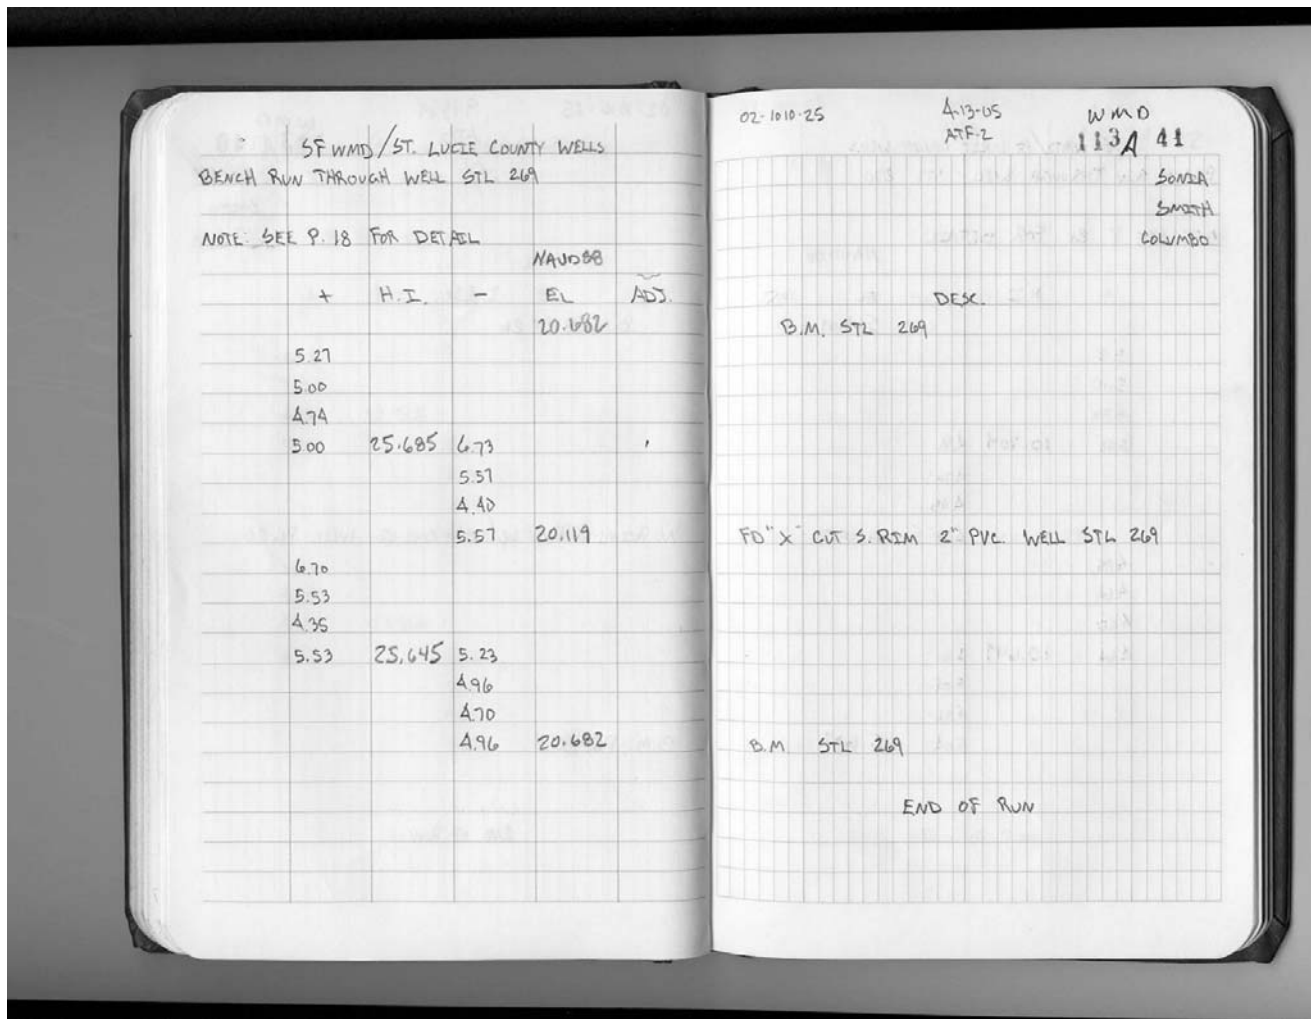 SFWMD/ST. LUCIE COUNTY WELLS
BENCH RUN THROUGH WELL STL 269
NOTE: SEE P. 18 FOR DETAIL
NAVD88
+ H.I. - EL ADJ.
20.682
5.27
5.00
4.74
5.00 25.685 6.73
5.57
4.40
5.57 20.119
6.70
5.53
4.35
5.53 25.645 5.23
4.96
4.70
4.96 20.682
02-1010-25 4-13-05 WMD
ATF-2 113A 41
SONIA
SMITH
COLUMBO
DESC.
B.M. STL 269
FD "X" CUT S. RIM 2" PVC. WELL STL 269
B.M STL 269
END OF RUN